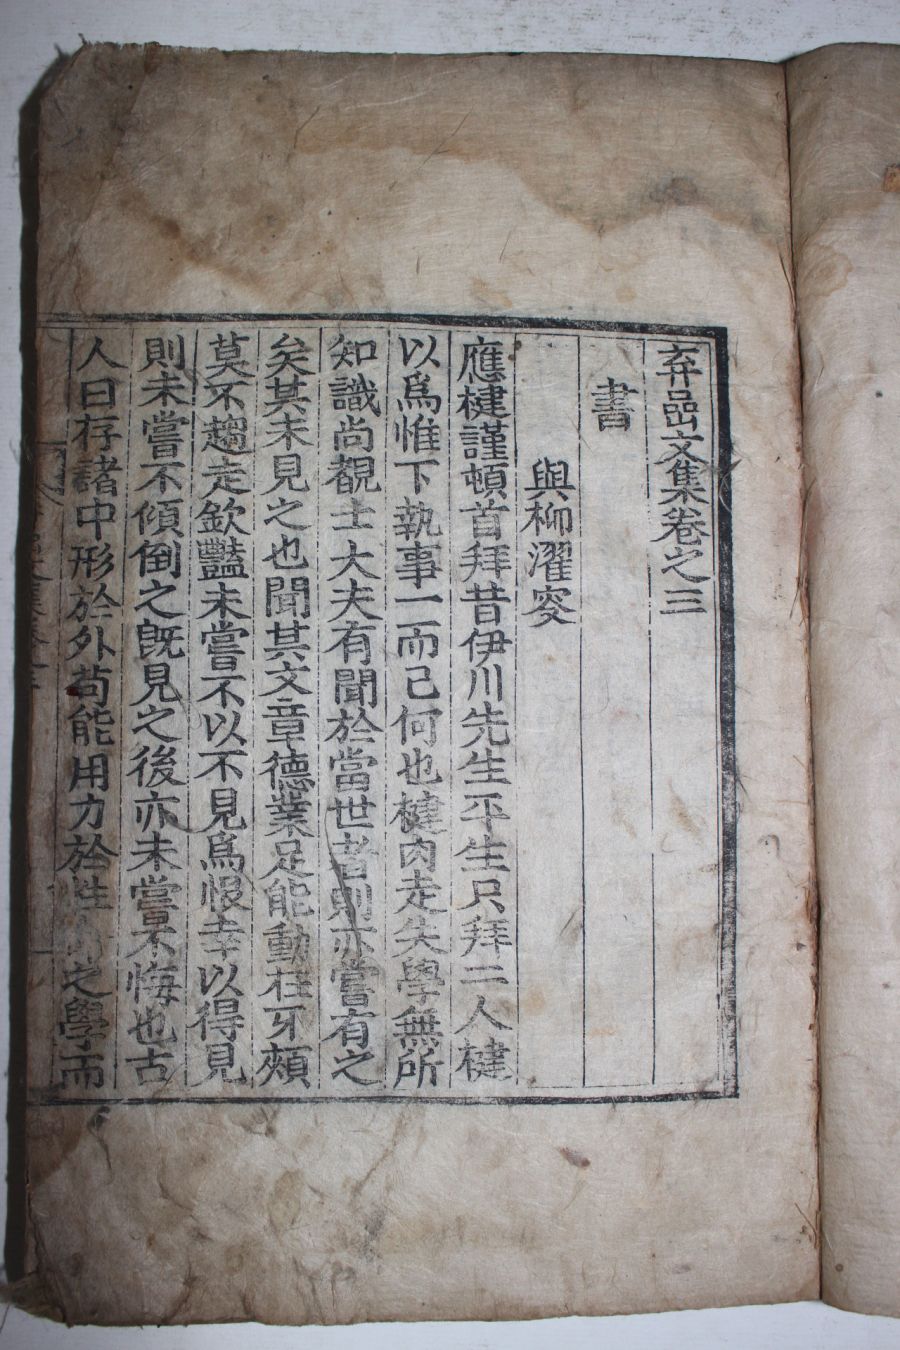 弃嵒文集卷之三
書
與柳濯㝫
應楗謹頓首拜昔伊川先生平生只拜二人楗
以爲惟下執事一而已何也楗肉走失學無所
知識尚覩士大夫有聞於當世者則亦嘗有之
矣其未見之也聞其文章德業足能動柱牙頰
莫不趨走欽豔未嘗不以不見爲恨幸以得見
則未嘗不傾倒之旣見之後亦未嘗不悔也古
人曰存諸中形於外苟能用力於性之學而